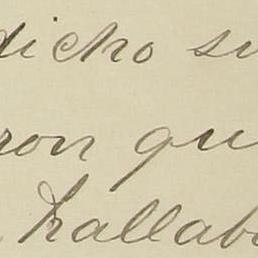 dicho su
ron qu
hallab